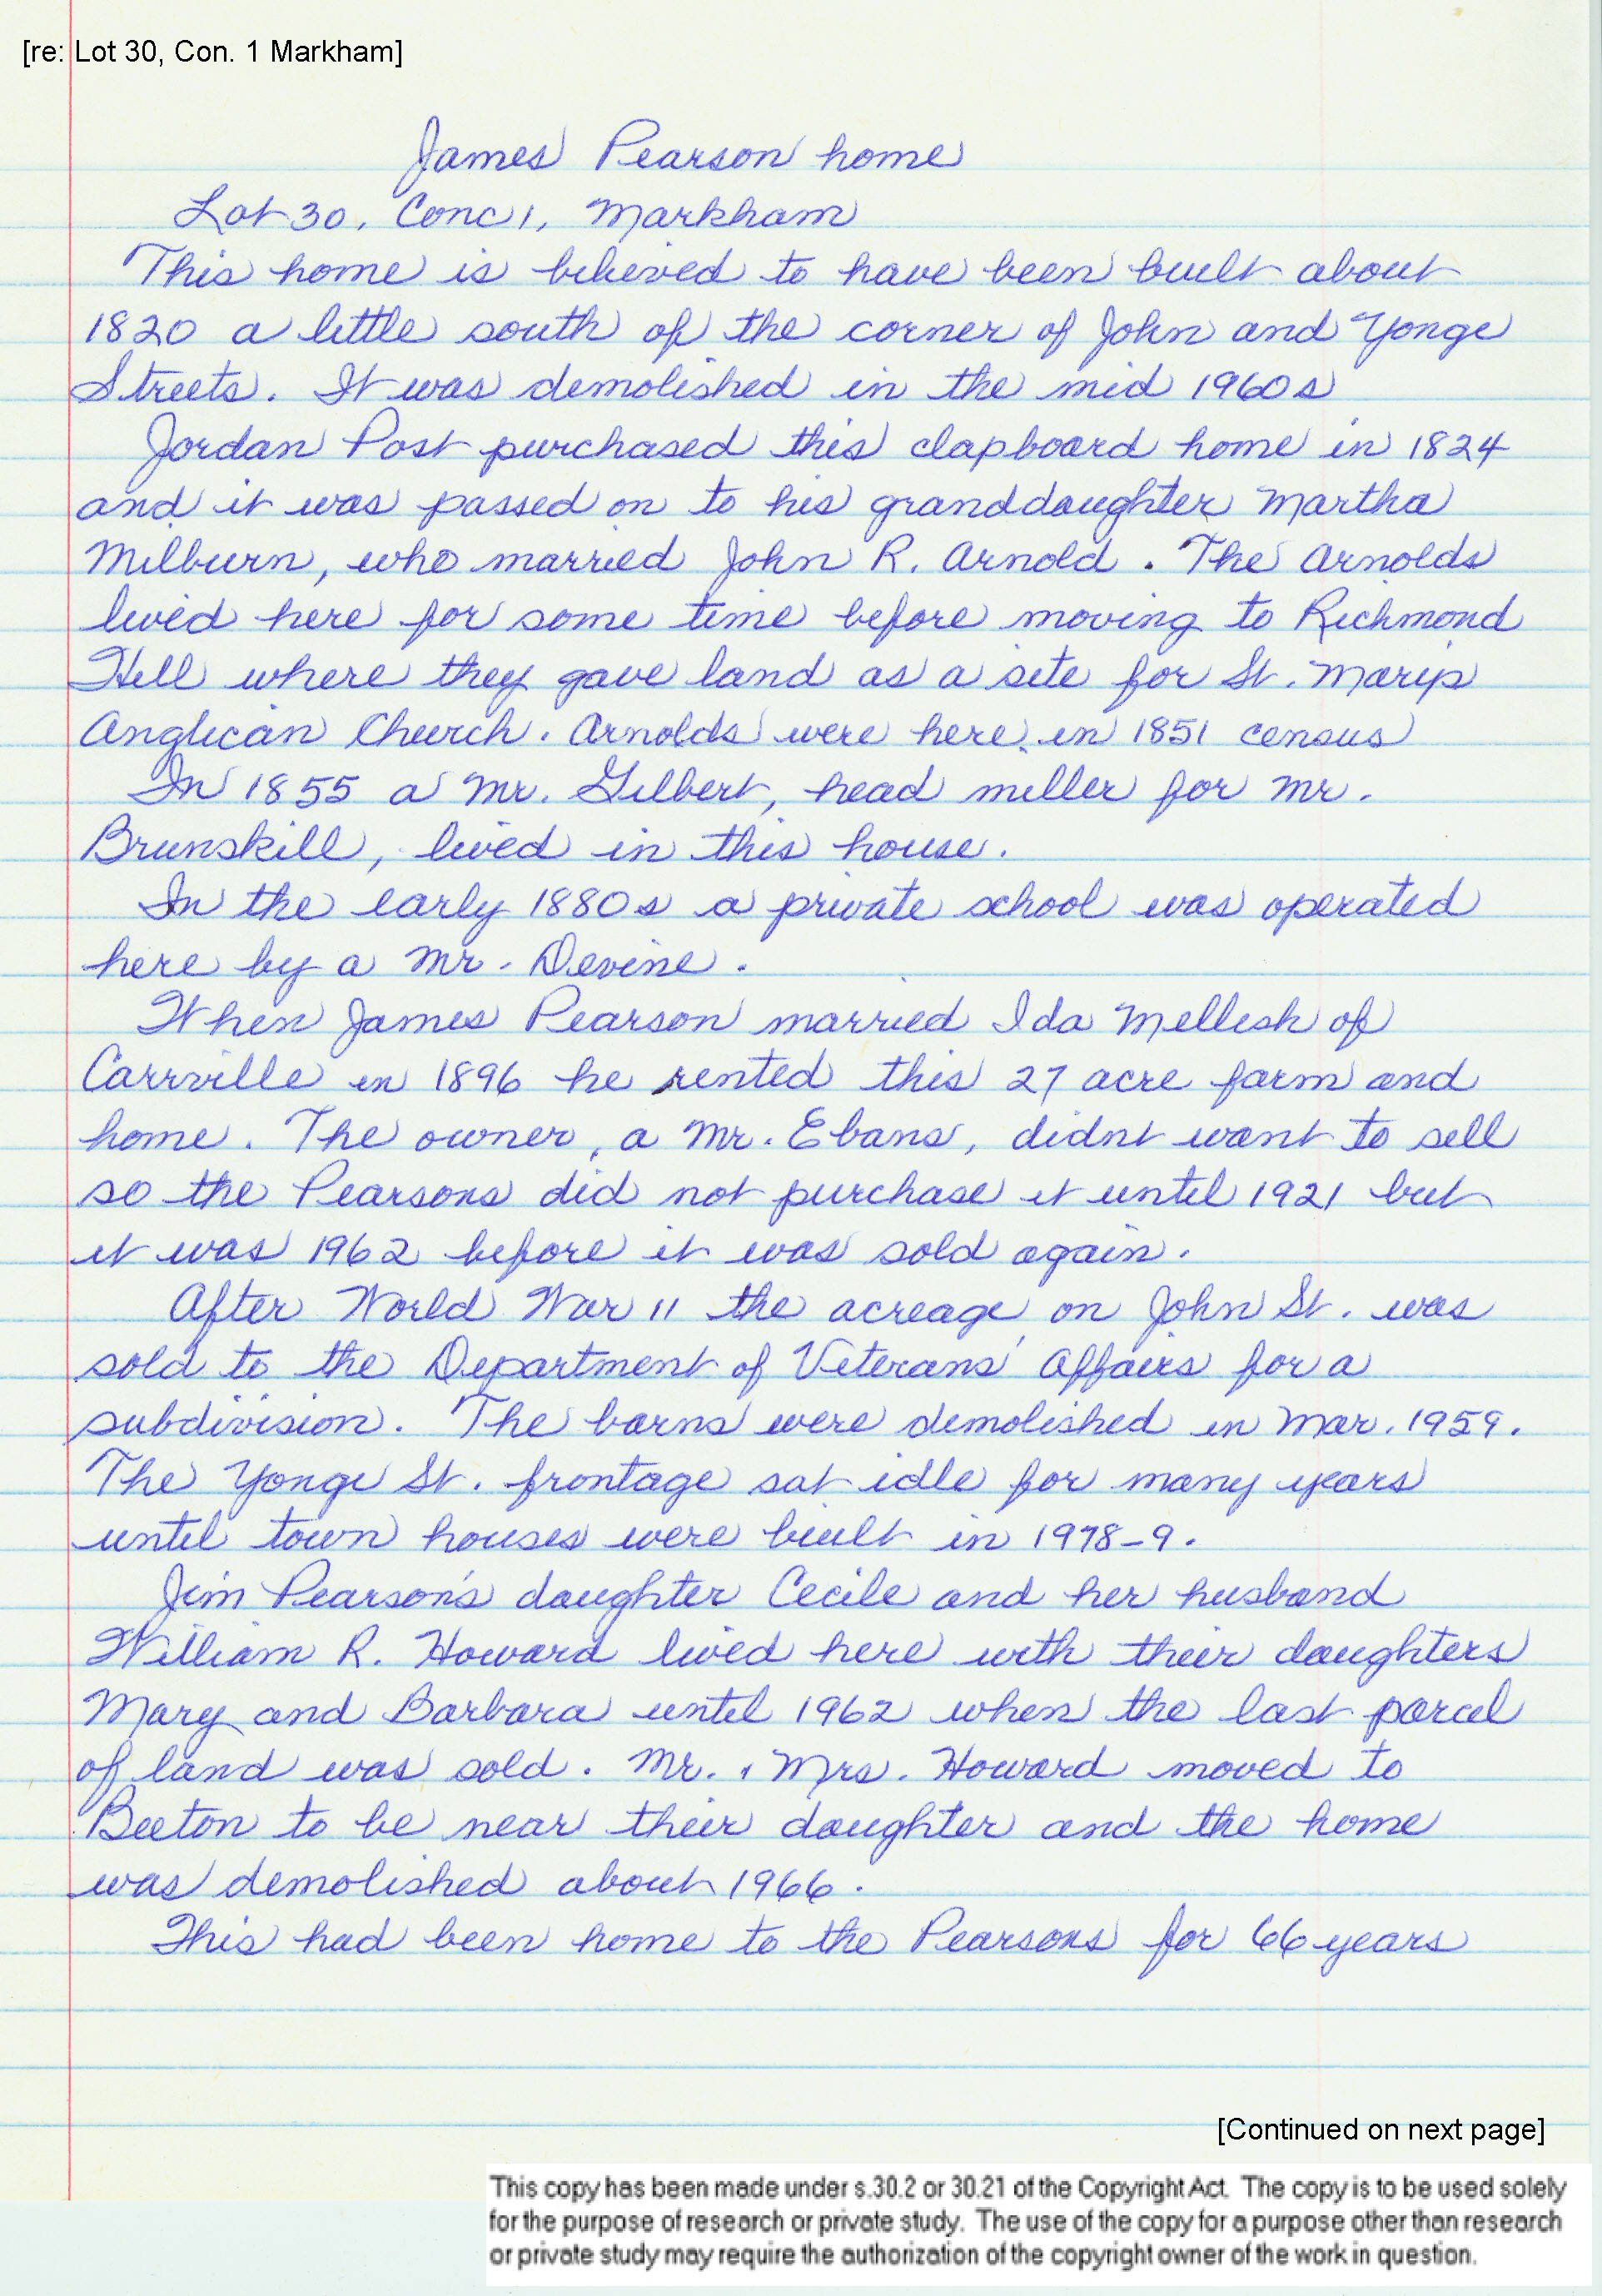 [re: Lot 30, Con. 1 Markham]
James Pearson home
Lot 30, Conc 1, Markham
This home is believed to have been built about
1820 a little south of the corner of John and Yonge
Streets. It was demolished in the mid 1960s
Jordan Post purchased this clapboard home in 1824
and it was passed on to his granddaughter Martha
Milburn, who married John R. Arnold. The Arnolds
lived here for some time before moving to Richmond
Hill where they gave land as a site for St. Mary's
Anglican Church. Arnolds were here in 1851 census
In 1855 a Mr. Gilbert, head miller for Mr.
Brunskill, lived in this house.
In the early 1880s a private school was operated
here by a Mr. Devine.
When James Pearson married Ida Mellish of
Carrville in 1896 he rented this 27 acre farm and
home. The owner, a Mr. Ebans, didnt want to sell
so the Pearsons did not purchase it until 1921 but
it was 1962 before it was sold again.
After World War 11 the acreage on John St. was
sold to the Department of Veterans' Affairs for a
subdivision. The barns were demolished in Mar. 1959.
The Yonge St. frontage sat idle for many years
until town houses were built in 1978-9.
Jim Pearson's daughter Cecile and her husband
William R. Howard lived here with their daughters
Mary and Barbara until 1962 when the last parcel
of land was sold. Mr. & Mrs. Howard moved to
Beeton to be near their daughter and the home
was demolished about 1966.
This had been home to the Pearsons for 66 years
[Continued on next page]
This copy has been made under s.30.2 or 30.21 of the Copyright Act. The copy is to be used solely
for the purpose of research or private study. The use of the copy for a purpose other than research
or private study may require the authorization of the copyright owner of the work in question.